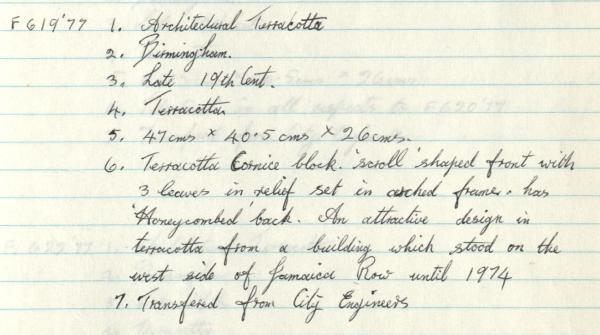 F619'77 1. Architectural Terracotta
2. Birmingham.
3. Late 19th Cent.
4. Terracotta
5. 47cms × 40.5 cms × 26cms.
6. Terracotta Cornice block. 'scroll' shaped front with
3 leaves in relief set in arched frame. has
'Honeycombed' back. An attractive design in
terracotta from a building which stood on the
west side of Jamaica Row until 1974
7. Transfered from City Engineers